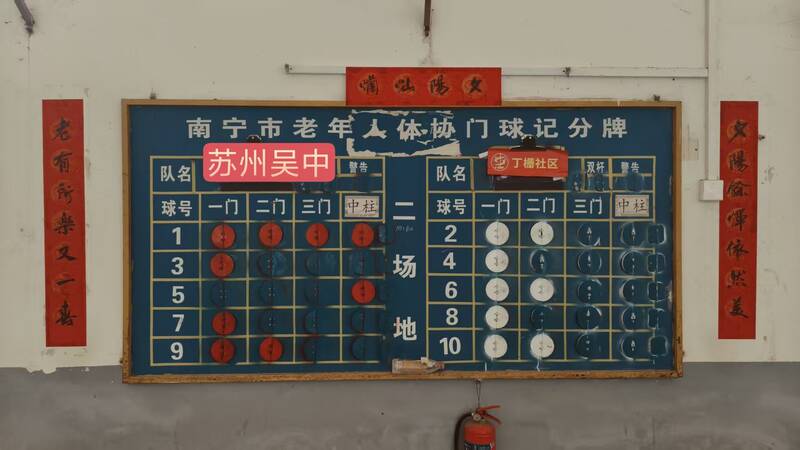 夕陽灿爛
老有所樂又一春
夕陽餘暉依然美
南宁市老年人体协门球记分牌
苏州吴中
队名 警告
球号 一门 二门 三门 中柱
1
3
5
7
9
二场地
丁栅社区
队名 双杆 警告
球号 一门 二门 三门 中柱
2
4
6
8
10